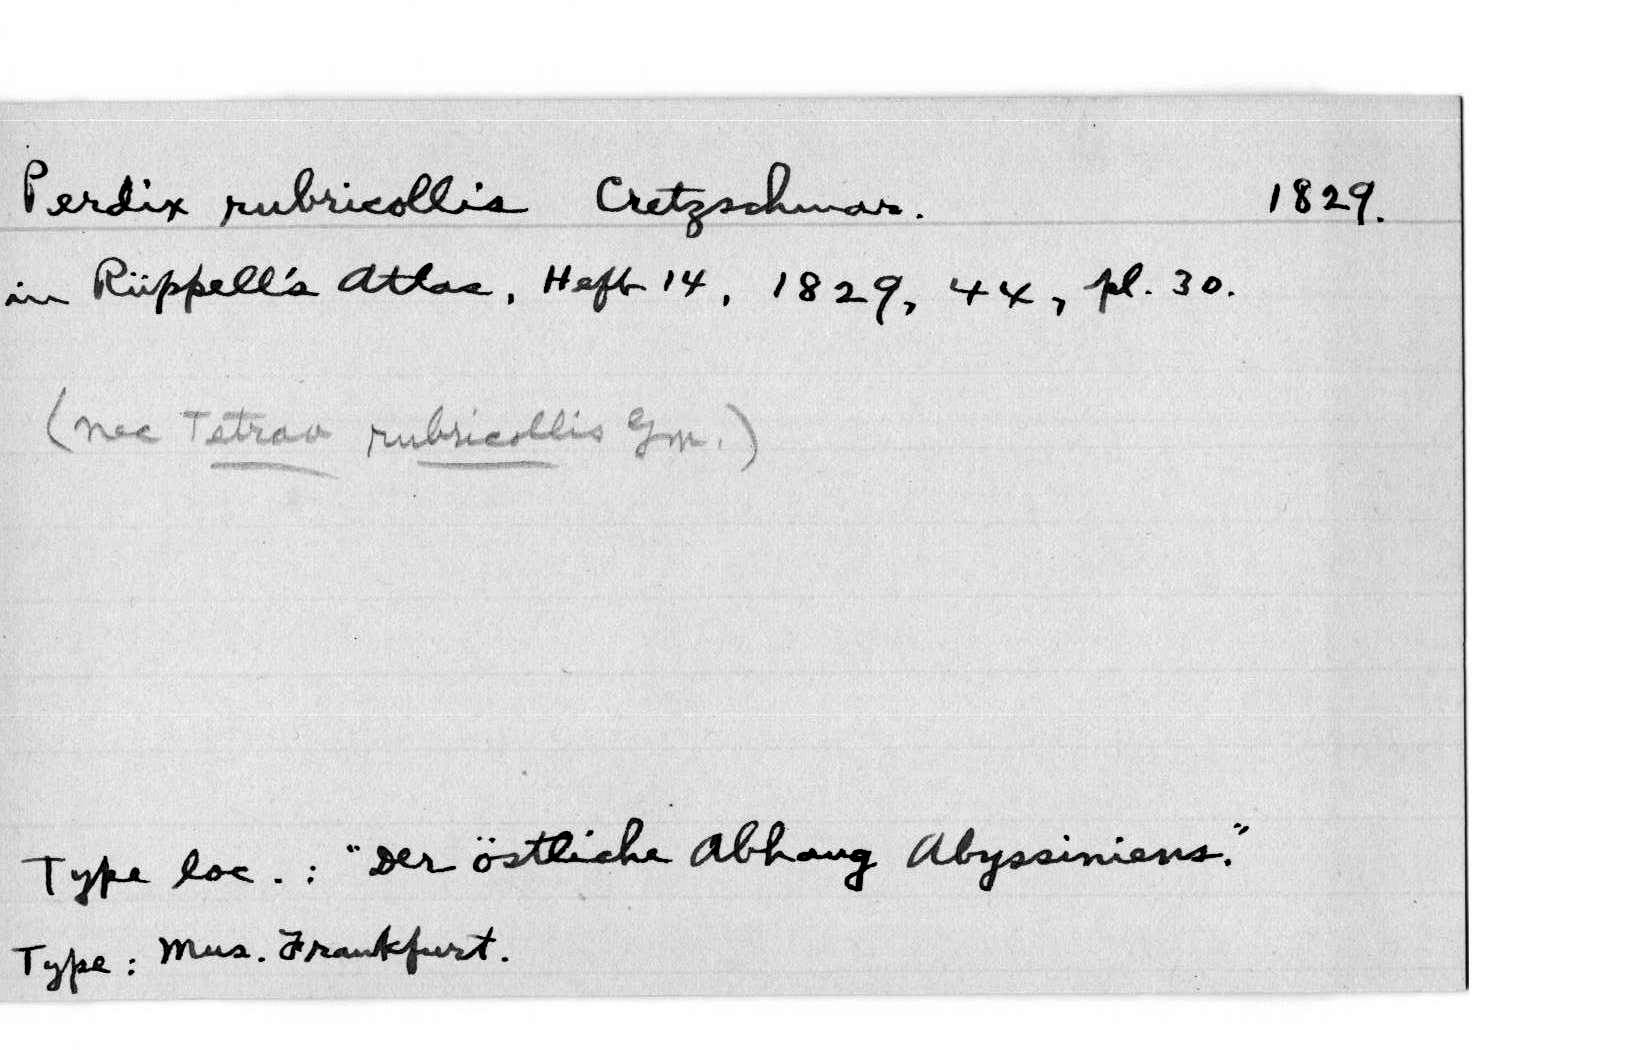 Perdix rubricollis Cretzschmar. 1829.
in Rüppell's Atlas, Heft 14, 1829, 44, pl. 30.
(nec Tetrao rubricollis Gm.)
Type loc. : "Der östliche Abhang Abyssiniens."
Type : Mus. Frankfurt.